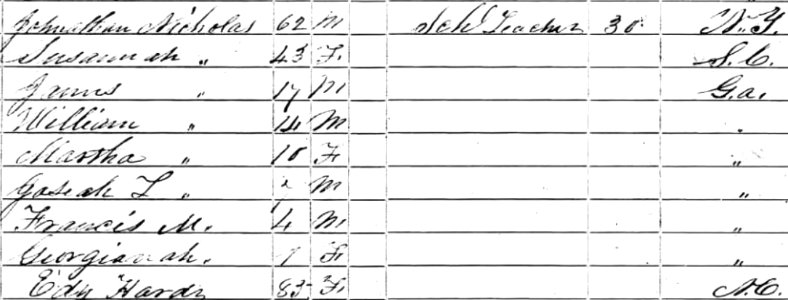 Johnathan Nicholas 62 M Sch Teacher 30 N.Y.
Susannah " 43 F. S.C.
James " 17 M Ga.
William " 14 M "
Martha " 10 F "
Joseah L " M "
Francis M. 4 M. "
Georgianah. 1 F "
Edy Hardy 83 F. N.C.